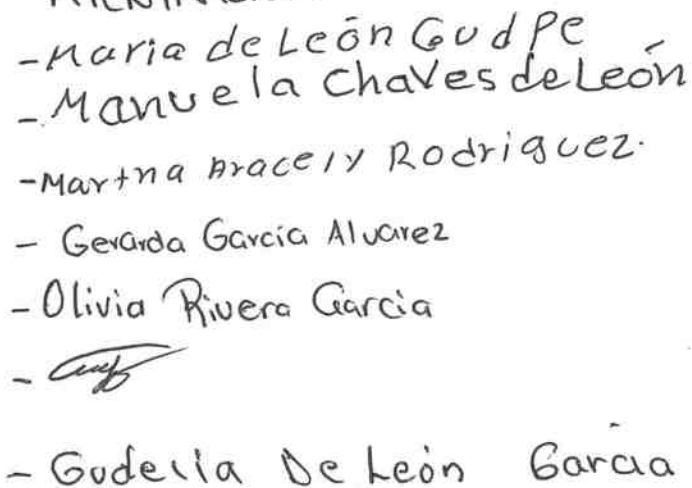 -Maria de León Gudpe
-Manuela Chaves de León
-Martha Aracely Rodriguez.
- Gerarda García Alvarez
- Olivia Rivera García
- Gudelia De León Garcia